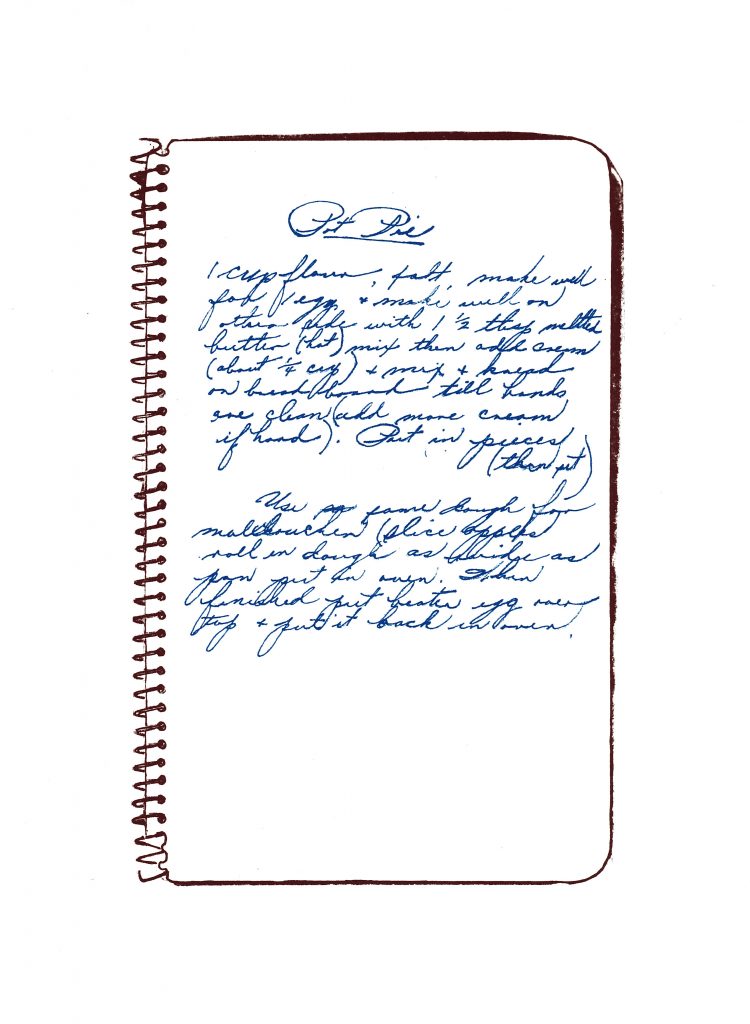 Pot Pie
1 cup flour, salt, make well
for 1 egg & make well on
other side with 1 ½ tbsp melted
butter (hot) mix then add cream
(about ¼ cup) & mix & knead
on bread board till hands
are clean (add more cream
if hard). Put in pieces
(thin out)
Use same dough for
(slice apples
roll in dough as wide as
pan put in oven. When
finished put beaten egg over
top & put it back in oven.